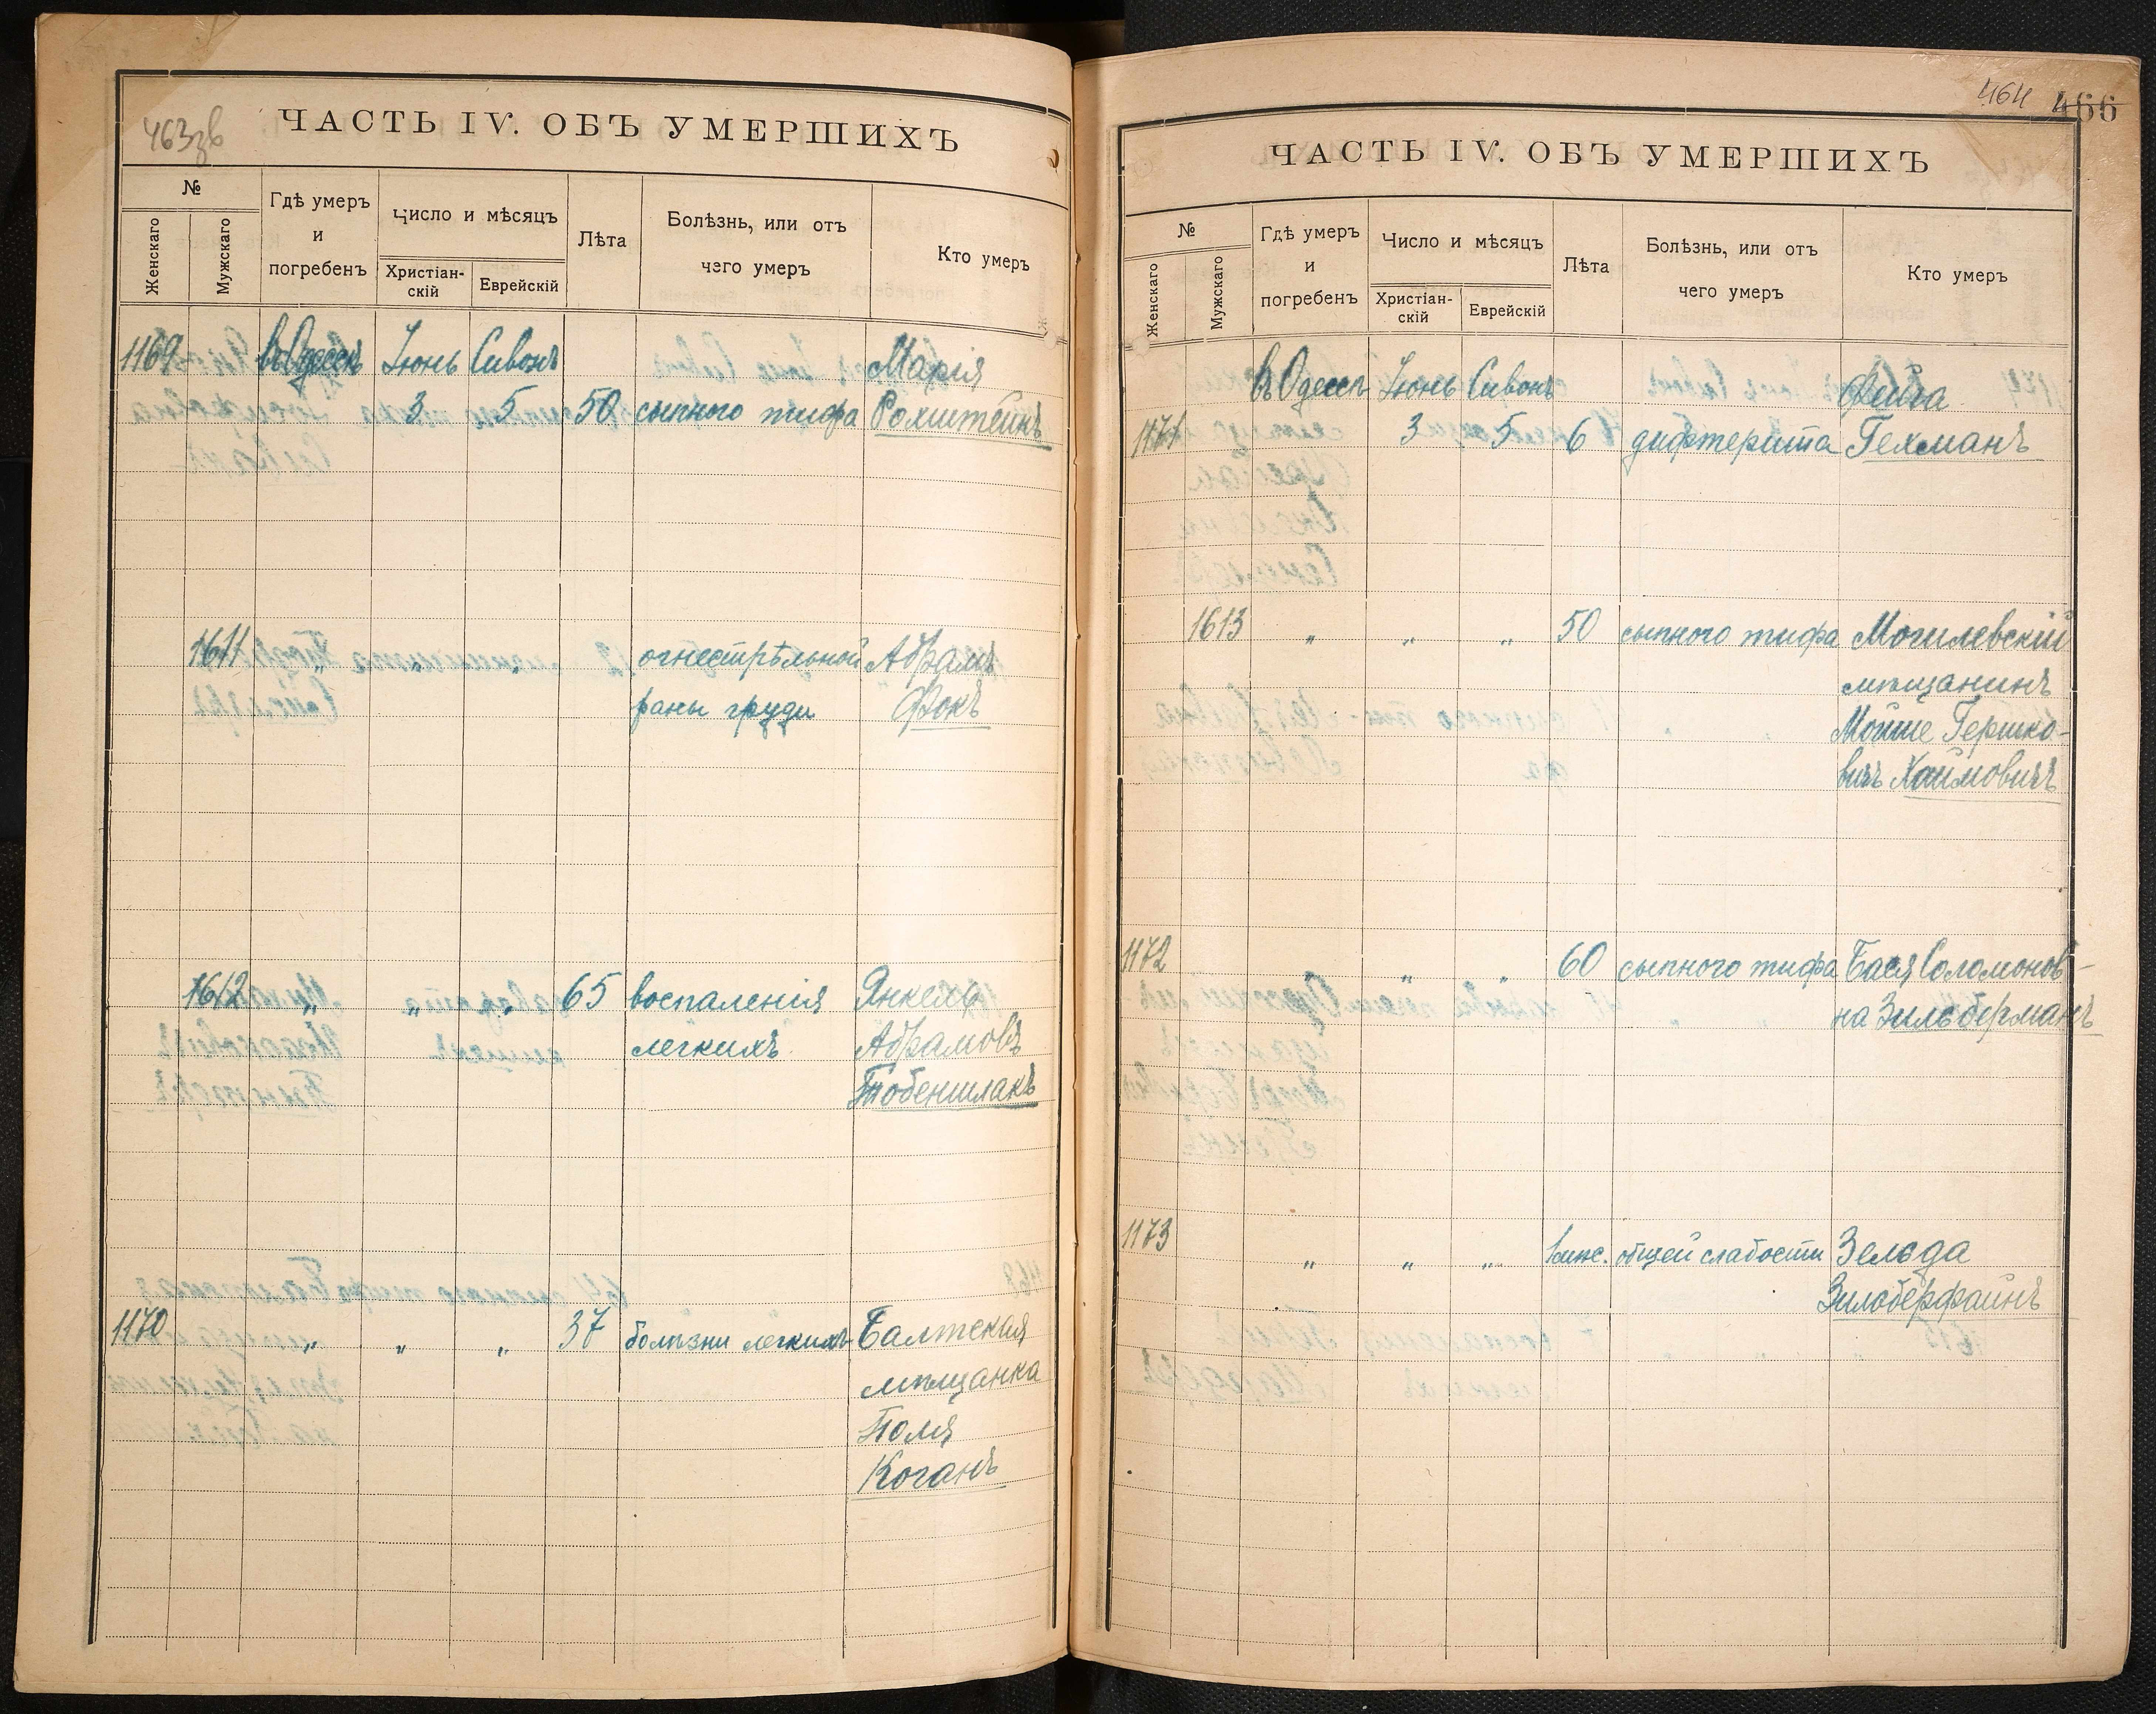 463зв
ЧАСТЬ IV. ОБЪ УМЕРШИХЪ
№
Женскаго
Мужскаго
Гдѣ умеръ
и
погребенъ
Число и мѣсяцъ
Христіан-
скій
Еврейскій
Лѣта
Болѣзнь, или отъ
чего умеръ
Кто умеръ
1169 въ Одессѣ Іюнь Сивонъ Марія
3 5 50 сыпного тифа Рохштейнъ
1611 " " " огнестрѣльной Абрамъ
раны груди Фокъ
1612 " " " 65 воспаленія Янкель
легкихъ Абрамовъ
Тобеншлакъ
1170 " " " 37 болѣзни легкихъ Балтская
мѣщанка
Поля
Коганъ
464 466
ЧАСТЬ IV. ОБЪ УМЕРШИХЪ
№
Женскаго
Мужскаго
Гдѣ умеръ
и
погребенъ
Число и мѣсяцъ
Христіан-
скій
Еврейскій
Лѣта
Болѣзнь, или отъ
чего умеръ
Кто умеръ
въ Одессѣ Іюнь Сивонъ Фейга
1171 3 5 6 дифтерита Гехманъ
1613 " " " 50 сыпного тифа Могилевскій
мѣщанинъ
Мойше Гершко-
вичъ Хаимовичъ
1172 " " " 60 сыпного тифа Бася Соломонов-
на Зильберманъ
1173 " " " общей слабости Зельда
Зильберфайнъ